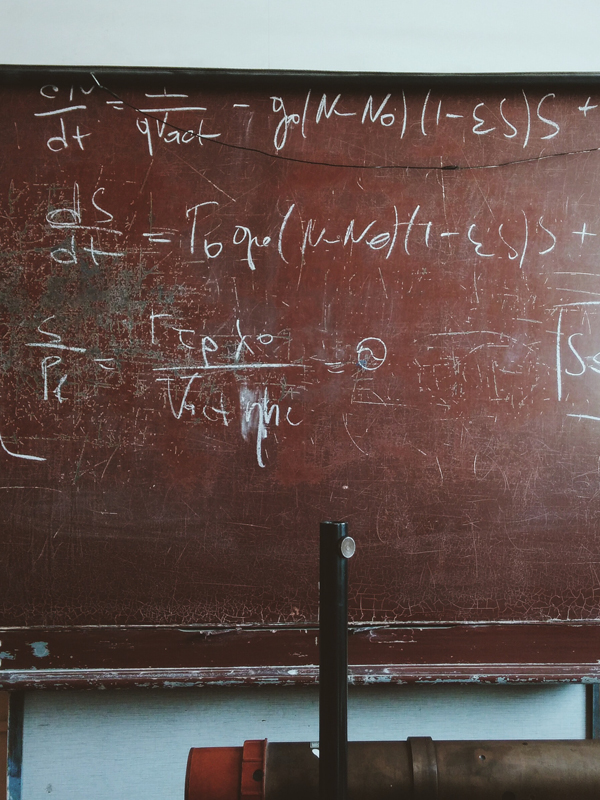 dN/dt = I/qVact - g₀(N-N₀)(1-εS)S +
dS/dt = Γ₀g₀(N-N₀)(1-εS)S +
S/Pf = Γτpλ₀/Vactηhc = ②
|S